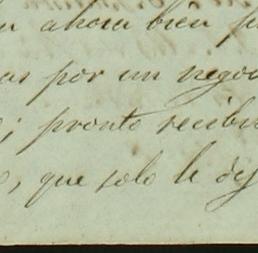 ahora bien
as por un nego
; pronto recibi
, que solo le dej